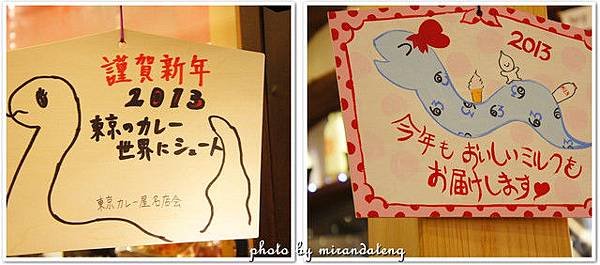 謹賀新年
2013
東京のカレー
世界にシュート
東京カレー屋名店会
2013
今年もおいしいミルクも
お届けします♥
photo by mirandateng